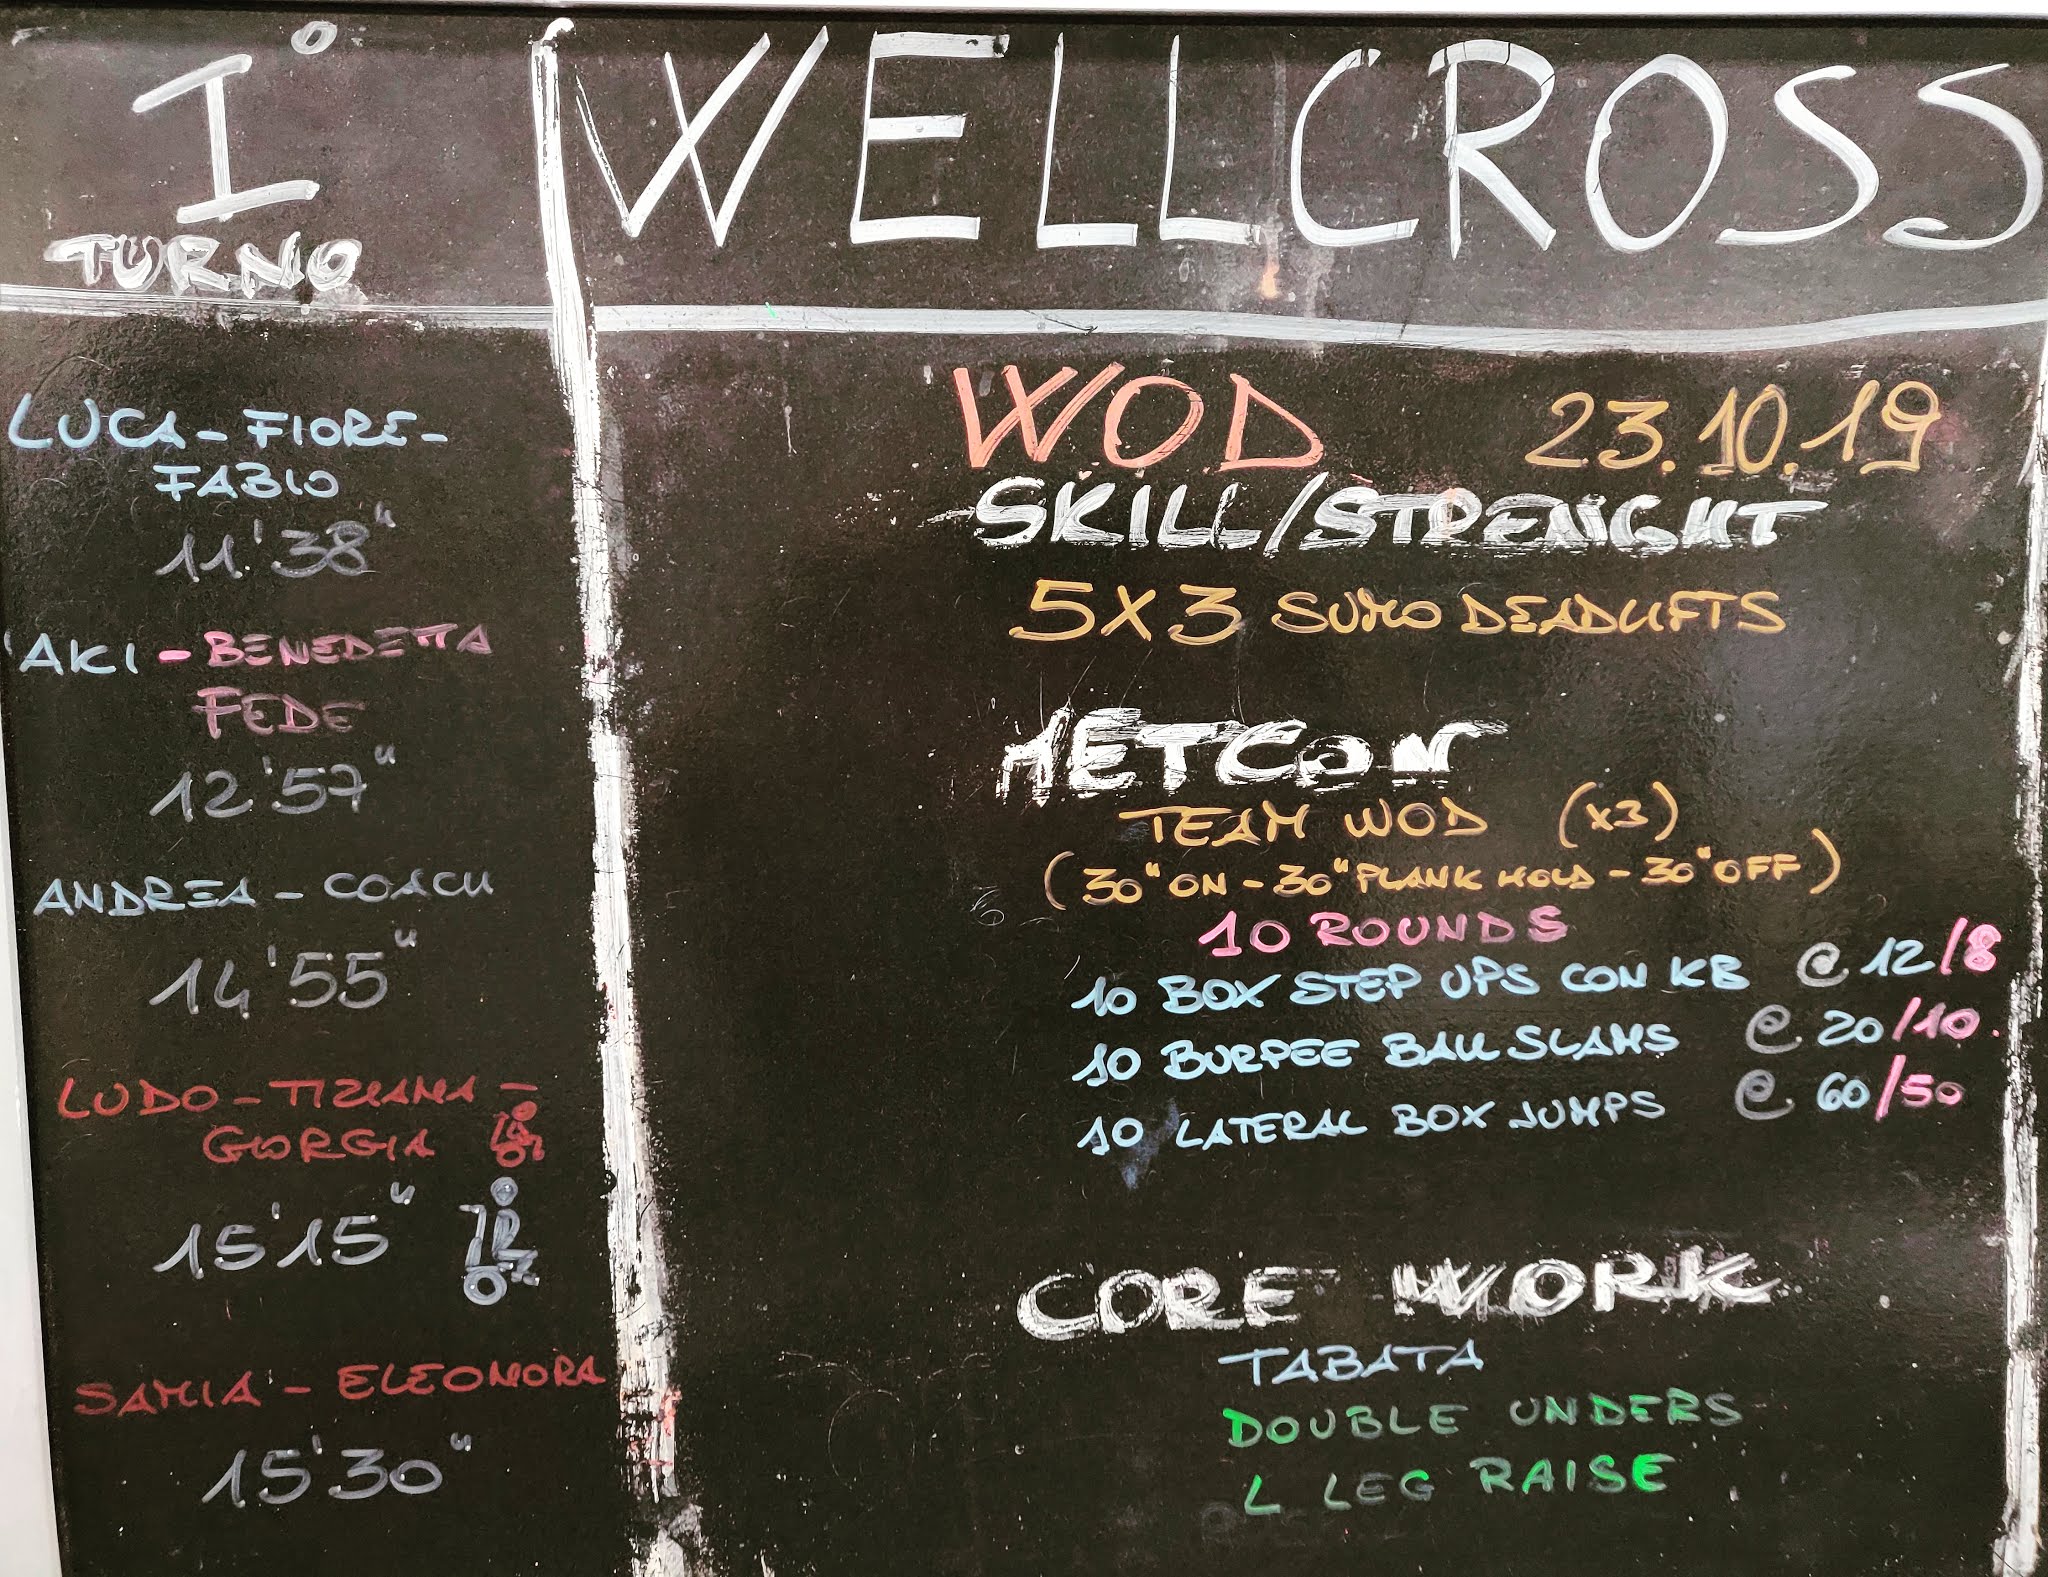 I°
TURNO
LUCA - FIORE -
FABIO
11'38"
AKI - BENEDETTA
FEDE
12'57"
ANDREA - COACH
14'55"
LUDO - TIZIANA -
GIORGIA
15'15"
SAMIA - ELEONORA
15'30"
WELLCROSS
WOD 23.10.19
SKILL/STRENGHT
5X3 SUMO DEADLIFTS
METCON
TEAM WOD (x3)
(30" ON - 30" PLANK HOLD - 30" OFF)
10 ROUNDS
10 BOX STEP UPS CON KB @ 12/8
10 BURPEE BALL SLAMS @ 20/10.
10 LATERAL BOX JUMPS @ 60/50
CORE WORK
TABATA
DOUBLE UNDERS
L LEG RAISE